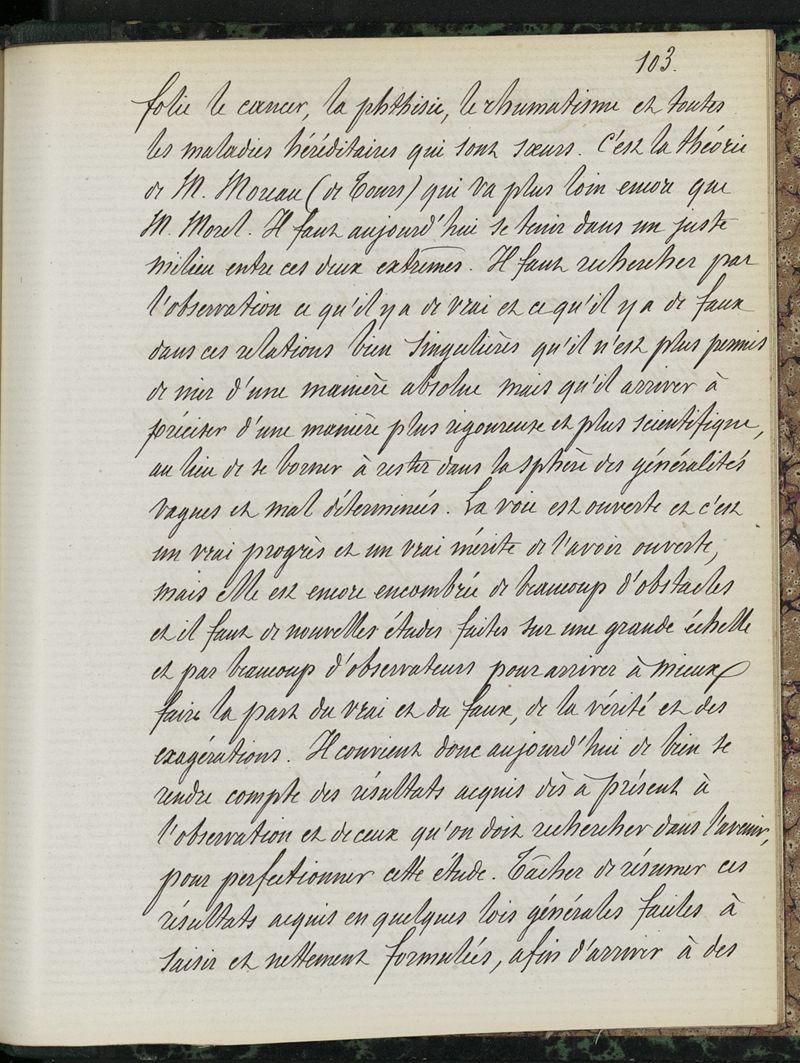 103.
folie le cancer, la phthisie, le rhumatisme et toutes
les maladies héréditaires qui sont sœurs. C'est la théorie
de M. Moreau (de Tours) qui va plus loin encore que
M. Morel. Il faut aujourd'hui se tenir dans un juste
milieu entre ces deux extrêmes. Il faut rechercher par
l'observation ce qu'il y a de vrai et ce qu'il y a de faux
dans ces relations bien singulières qu'il n'est plus permis
de nier d'une manière absolue mais qu'il arriver à
préciser d'une manière plus rigoureuse et plus scientifique,
au lieu de se borner à rester dans la sphère des généralités
vagues et mal déterminées. La voie est ouverte et c'est
un vrai progrès et un vrai mérite de l'avoir ouverte,
mais elle est encore encombrée de beaucoup d'obstacles
et il faut de nouvelles études faites sur une grande échelle
et par beaucoup d'observateurs pour arriver à mieux
faire la part du vrai et du faux, de la vérité et des
exagérations. Il convient donc aujourd'hui de bien se
rendre compte des résultats acquis dès à présent à
l'observation et de ceux qu'on doit rechercher dans l'avenir,
pour perfectionner cette étude. Tâcher de résumer ces
résultats acquis en quelques lois générales faciles à
saisir et nettement formulées, afin d'arriver à des